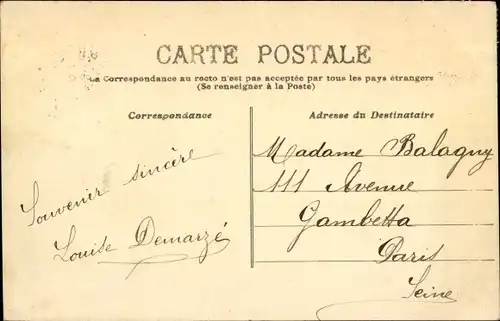 CARTE POSTALE
La Correspondance au recto n'est pas acceptée par tous les pays étrangers
(Se renseigner à la Poste)
Correspondance
Souvenir sincère
Louise Demarzé
Adresse du Destinataire
Madame Balagny
111 Avenue
Gambetta
Paris
Seine